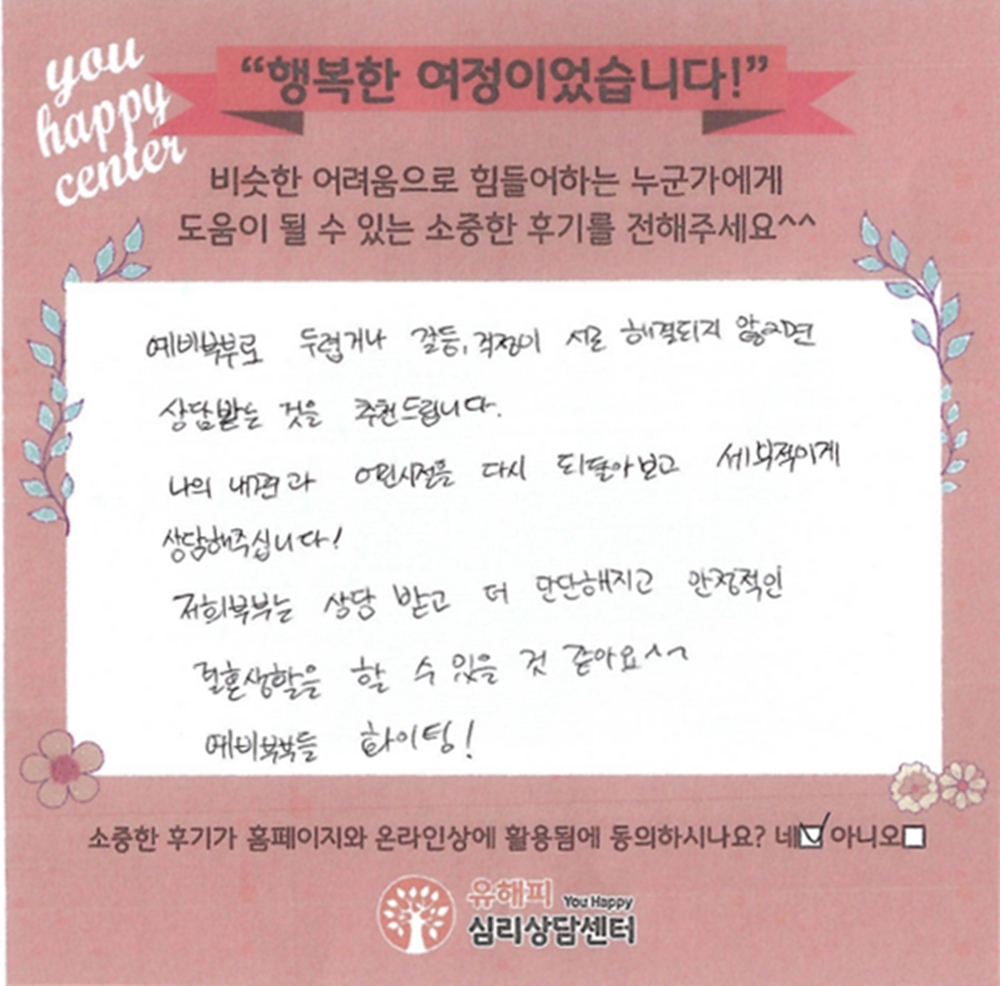 you
happy
center
“행복한 여정이었습니다!”
비슷한 어려움으로 힘들어하는 누군가에게
도움이 될 수 있는 소중한 후기를 전해주세요^^
예비부부로 두렵거나 갈등, 걱정이 서로 해결되지 않으면
상담받는 것을 추천드립니다.
나의 내면과 어린시절을 다시 되돌아보고
상담해주십니다!
저희부부는 상담 받고 더 단단해지고 안정적인
결혼생활을 할 수 있을 것 같아요^^
예비부부들 화이팅!
소중한 후기가 홈페이지와 온라인상에 활용됨에 동의하시나요? 네 아니오
유해피 You Happy
심리상담센터